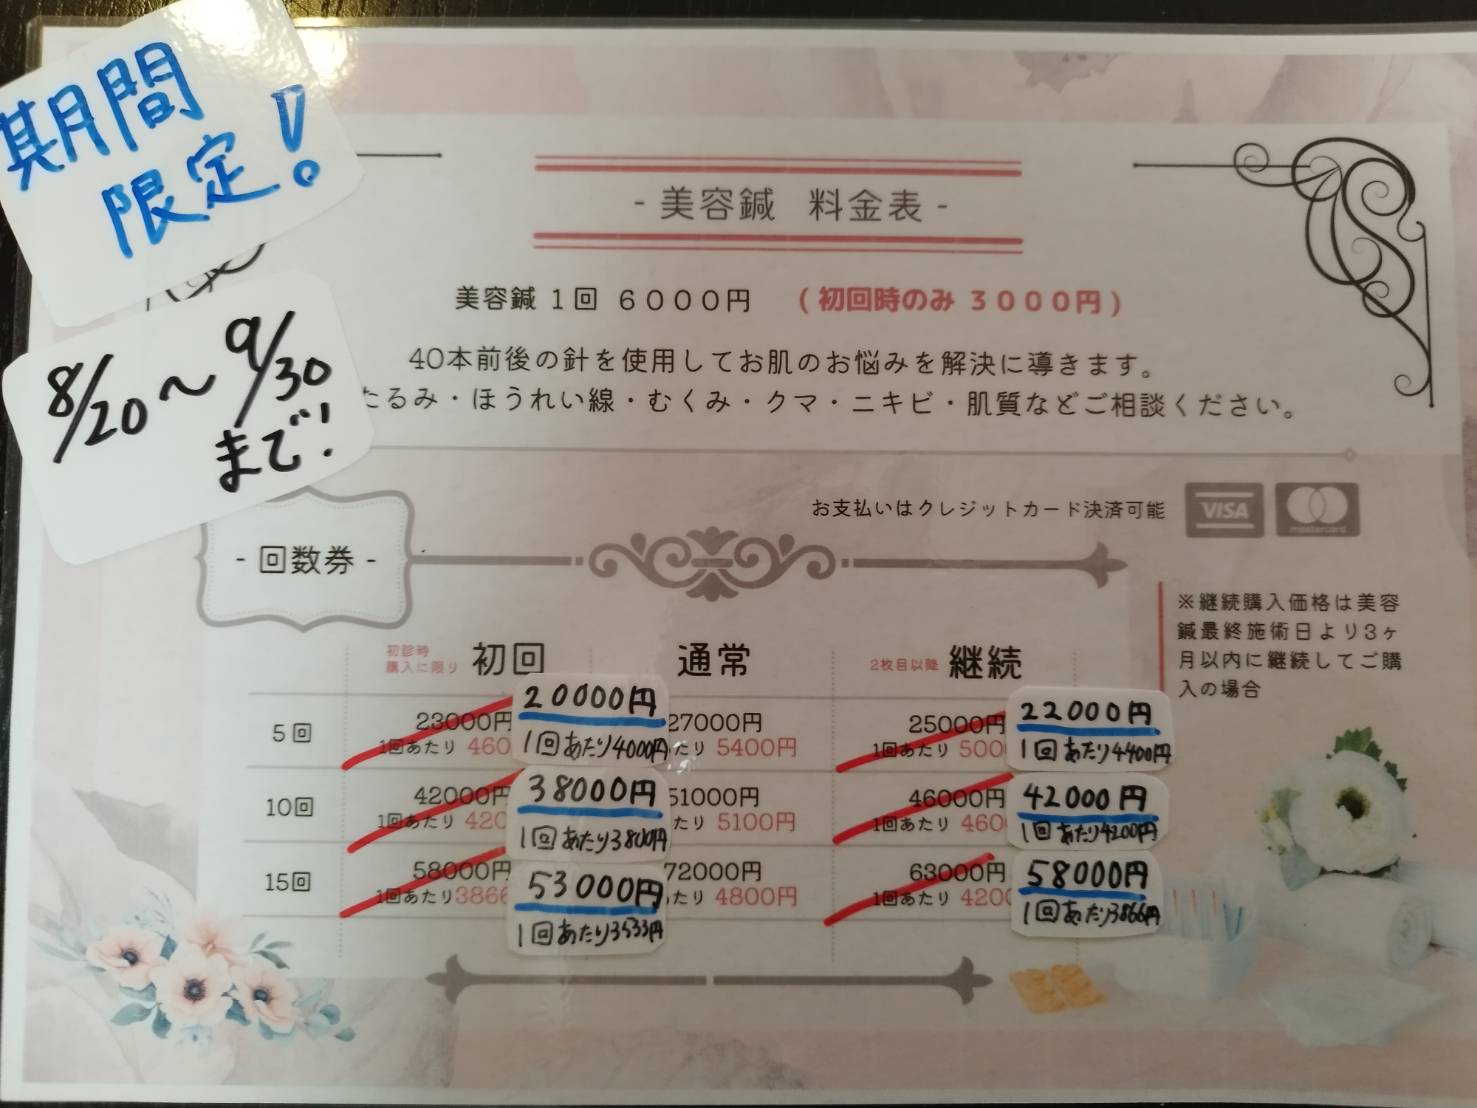 期間
限定!
8/20～9/30
まで!
- 美容鍼 料金表 -
美容鍼 1回 6000円 (初回時のみ 3000円)
40本前後の針を使用してお肌のお悩みを解決に導きます。
たるみ・ほうれい線・むくみ・クマ・ニキビ・肌質などご相談ください。
お支払いはクレジットカード決済可能 VISA mastercard
- 回数券 -
※継続購入価格は美容
鍼最終施術日より3ヶ
月以内に継続してご購
入の場合
初診時
購入に限り 初回 通常 2枚目以降 継続
5回 23000円 20000円 27000円 25000円 22000円
1回あたり 460 1回あたり4000円 たり 5400円 1回あたり 500 1回あたり4400円
10回 42000円 38000円 51000円 46000円 42000円
1回あたり 420 1回あたり3800円 たり 5100円 1回あたり 460 1回あたり4200円
15回 58000円 53000円 72000円 63000円 58000円
1回あたり3866 1回あたり3533円 たり 4800円 1回あたり 420 1回あたり3866円